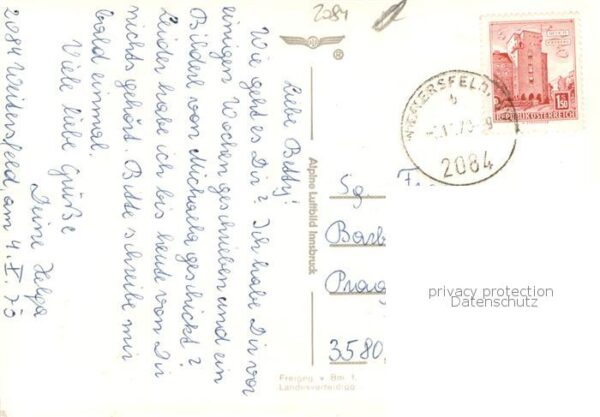 Liebe Betty!
Wie geht es Dir? Ich habe Dir vor
einigen Wochen geschrieben und ein
Bilderl von Michaela geschickt?
Leider habe ich bis heute von Dir
nichts gehört. Bitte schreibe mir
bald einmal.
Viele liebe Grüße
Deine Helga
2084 Weitersfeld, am 4. V. 70
2084
®
Alpine Luftbild Innsbruck
Freigeg. v. Bm. f.
Landesverteidigg.
1.50
REPUBLIK ÖSTERREICH
WEITERSFELD
b
2084
Sg.
Barb
Prag
3580
privacy protection
Datenschutz